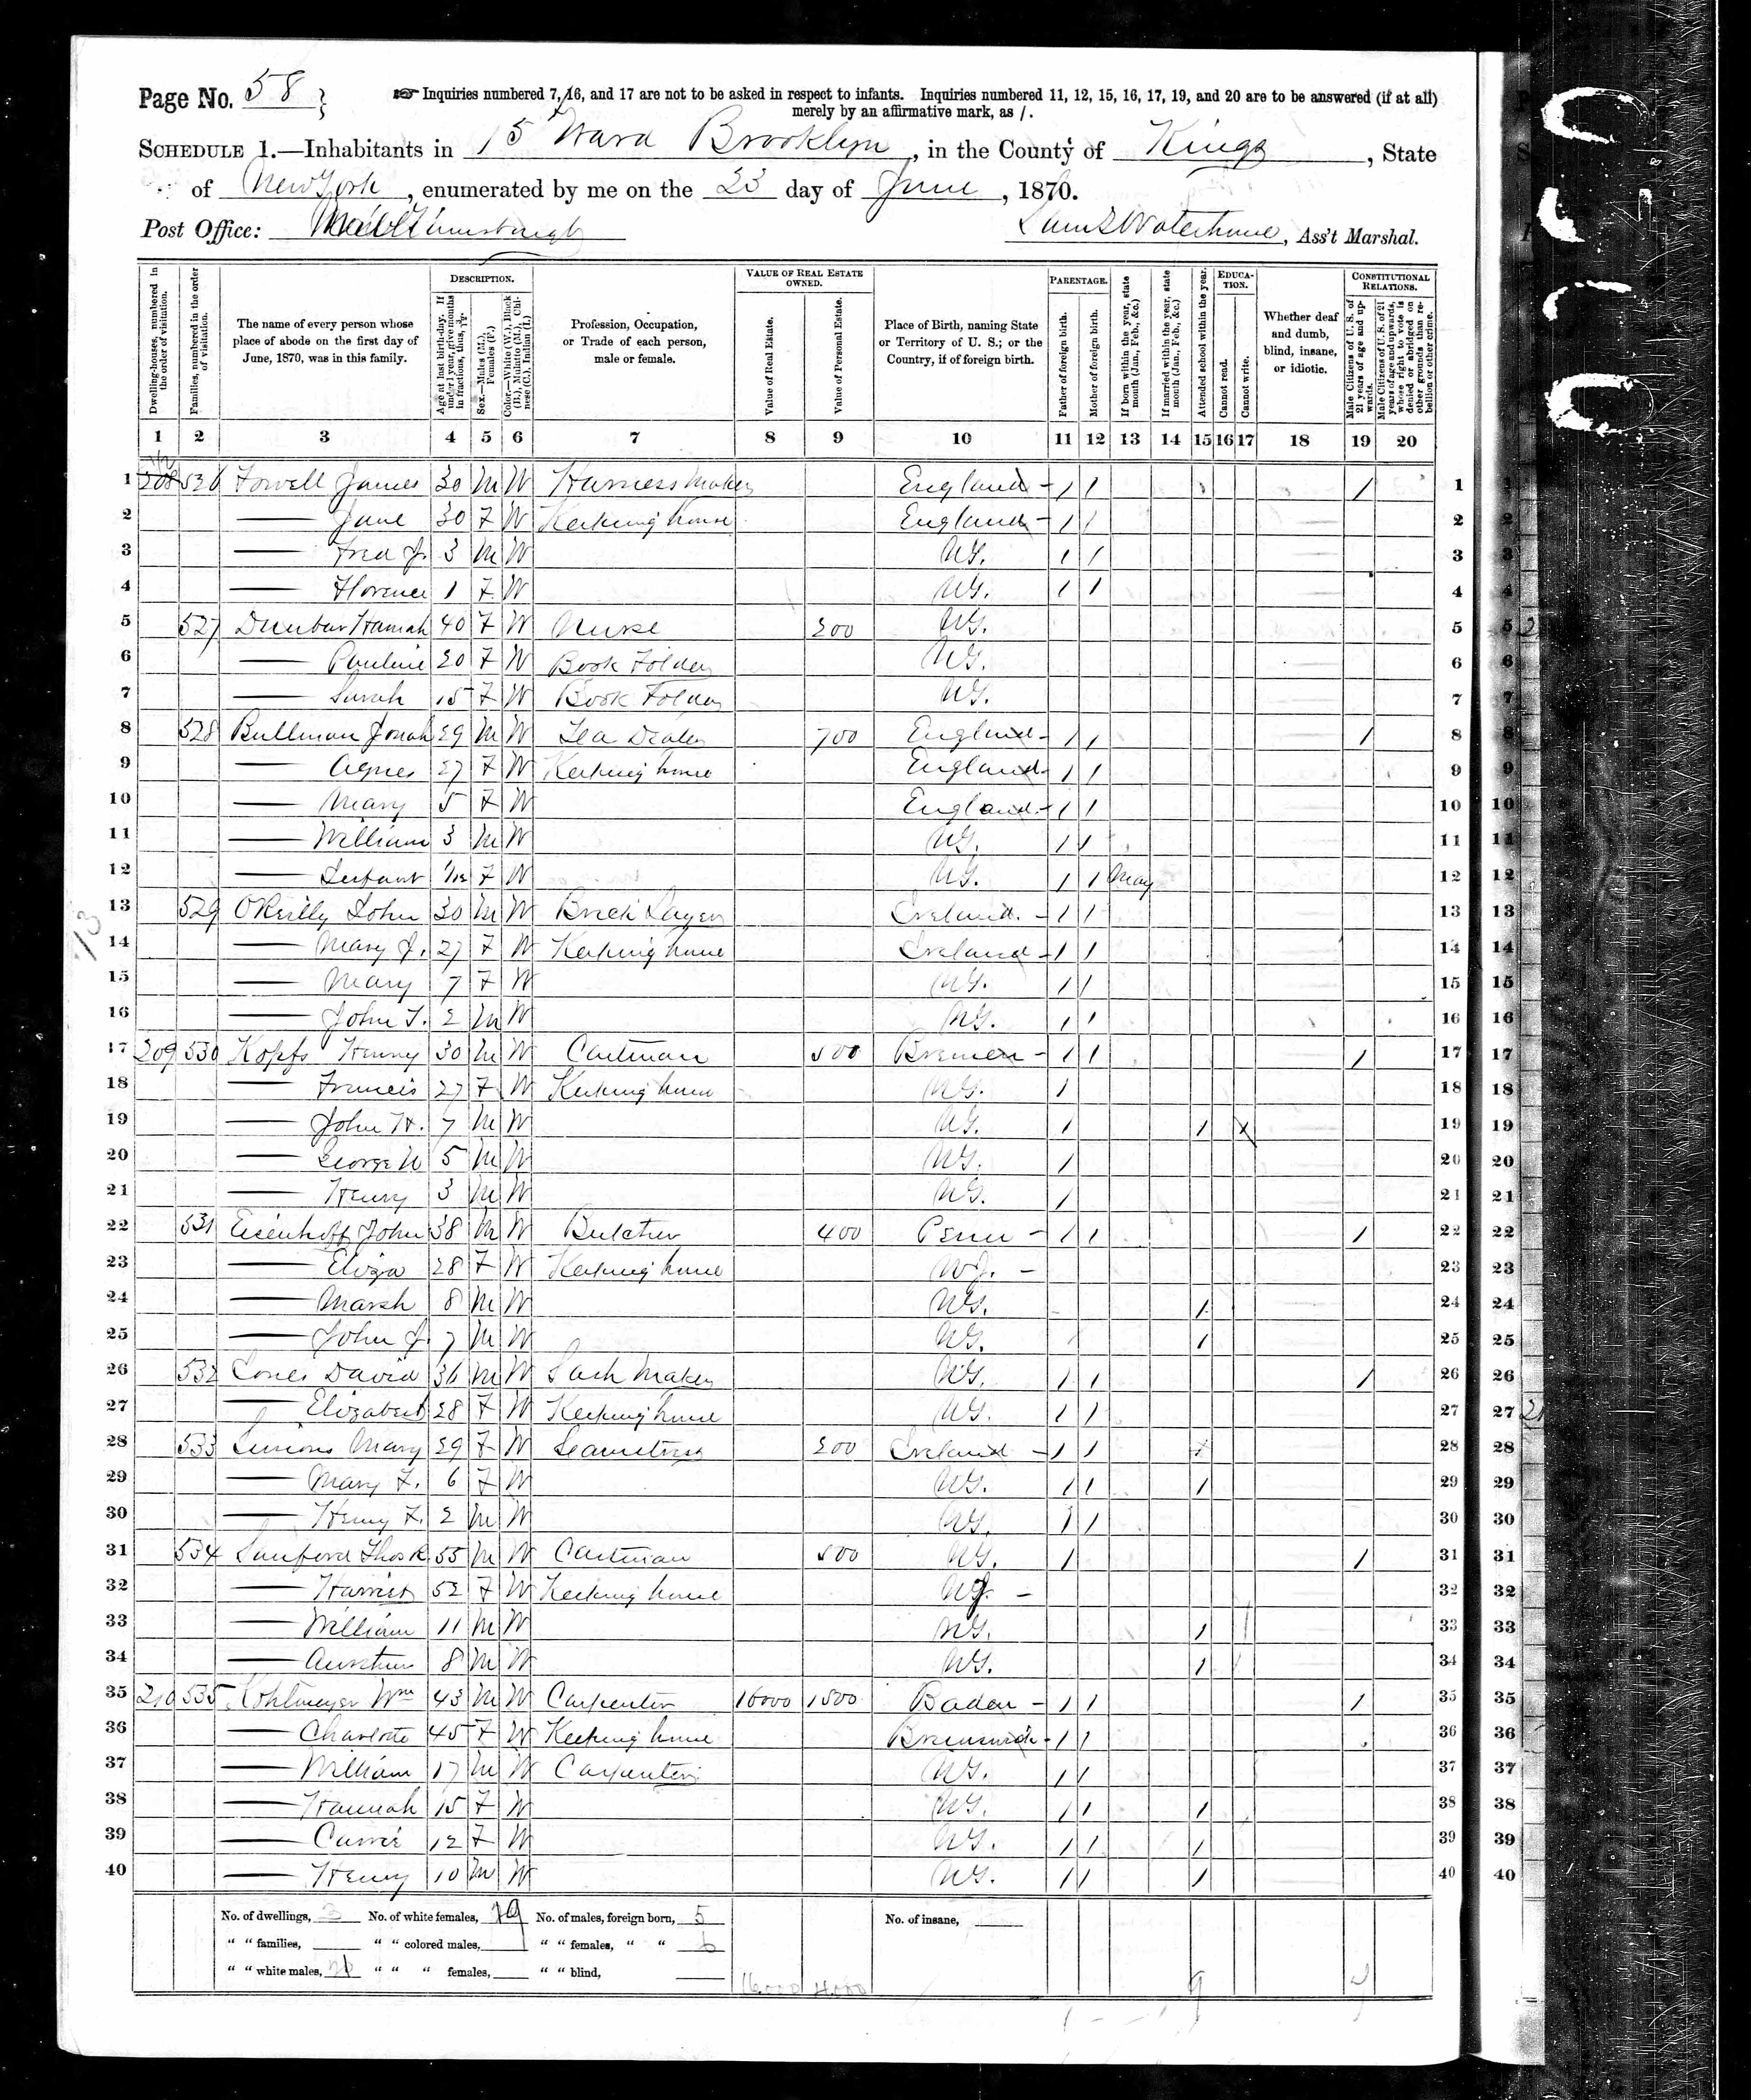 Page No. 58
Inquiries numbered 7, 16, and 17 are not to be asked in respect to infants. Inquiries numbered 11, 12, 15, 16, 17, 19, and 20 are to be answered (if at all)
merely by an affirmative mark, as /.
SCHEDULE 1.—Inhabitants in 15 Ward Brooklyn, in the County of Kings, State
of New York, enumerated by me on the 23 day of June, 1870.
Post Office: Williamsburgh Waterhouse, Ass't Marshal.
Dwelling-houses, numbered in the order of visitation.
Families, numbered in the order of visitation.
The name of every person whose place of abode on the first day of June, 1870, was in this family.
DESCRIPTION.
Age at last birth-day. If under 1 year, give months in fractions, thus, 3/12.
Sex.—Males (M.), Females (F.)
Color.—White (W.), Black (B.), Mulatto (M.), Chinese (C.), Indian (I.)
Profession, Occupation, or Trade of each person, male or female.
VALUE OF REAL ESTATE OWNED.
Value of Real Estate.
Value of Personal Estate.
Place of Birth, naming State or Territory of U. S.; or the Country, if of foreign birth.
PARENTAGE.
Father of foreign birth.
Mother of foreign birth.
If born within the year, state month (Jan., Feb., &c.)
If married within the year, state month (Jan., Feb., &c.)
Attended school within the year.
EDUCATION.
Cannot read.
Cannot write.
Whether deaf and dumb, blind, insane, or idiotic.
CONSTITUTIONAL RELATIONS.
Male Citizens of U. S. of 21 years of age and upwards.
Male Citizens of U. S. of 21 years of age and upwards, whose right to vote is denied or abridged on other grounds than rebellion or other crime.
1 2 3 4 5 6 7 8 9 10 11 12 13 14 15 16 17 18 19 20
1 208 526 Fowell James 30 M W Harness Maker England - / / / 1
2 —— Jane 30 F W Keeping house England - / / 2
3 —— Fred J. 3 M W NY. / / 3
4 —— Florence 1 F W NY. / / 4
5 527 Dunbar Hannah 40 F W Nurse 200 NY. 5
6 —— Pauline 20 F W Book Folder NY. 6
7 —— Sarah 15 F W Book Folder NY. 7
8 528 Bullman Jonah 29 M W Tea Dealer 700 England - / / / 8
9 —— Agnes 27 F W Keeping house England - / / 9
10 —— Mary 5 F W England - / / 10
11 —— William 3 M W NY. / / 11
12 —— Infant 1/12 F W NY. / / May 12
13 529 OReilly John 30 M W Brick Layer Ireland. - / / 13
14 —— Mary J. 27 F W Keeping house Ireland - / / 14
15 —— Mary 7 F W NY. / / 15
16 —— John T. 2 M W NY. / / 16
17 209 530 Kopfs Henry 30 M W Cartman 500 Bremen - / / / 17
18 —— Francis 27 F W Keeping house NY. / 18
19 —— John H. 7 M W NY. / / 19
20 —— George W 5 M W NY. / 20
21 —— Henry 3 M W NY. / 21
22 531 Eisenhoff John 38 M W Butcher 400 Penn - / / / 22
23 —— Eliza 28 F W Keeping house NJ. - 23
24 —— Marsh 8 M W NY. / 24
25 —— John J. 7 M W NY. / 25
26 532 Cones David 36 M W Sash Maker NY. / / / 26
27 —— Elizabeth 28 F W Keeping house NY. / / 27
28 533 Simons Mary 29 F W Seamstress 200 Ireland - / / 28
29 —— Mary F. 6 F W NY. / / / 29
30 —— Henry F. 2 M W NY. / / 30
31 534 Sanford Thos R. 55 M W Cartman 500 NY. / / 31
32 —— Harriet 52 F W Keeping house NJ. - 32
33 —— William 11 M W NY. / 33
34 —— 8 M W NY. / 34
35 210 535 Kohlmeyer Wm 43 M W Carpenter 16000 1500 Baden - / / / 35
36 —— Charlotte 45 F W Keeping house Brunswick - / / 36
37 —— William 17 M W Carpenter NY. / / 37
38 —— Hannah 15 F W NY. / / / 38
39 —— Carrie 12 F W NY. / / / 39
40 —— Henry 10 M W NY. / / / 40
No. of dwellings, 3 No. of white females, 19 No. of males, foreign born, 5 No. of insane,
" " families, " " colored males, " " females, " " 6
" " white males, " " " females, " " blind,
16000 4000 9